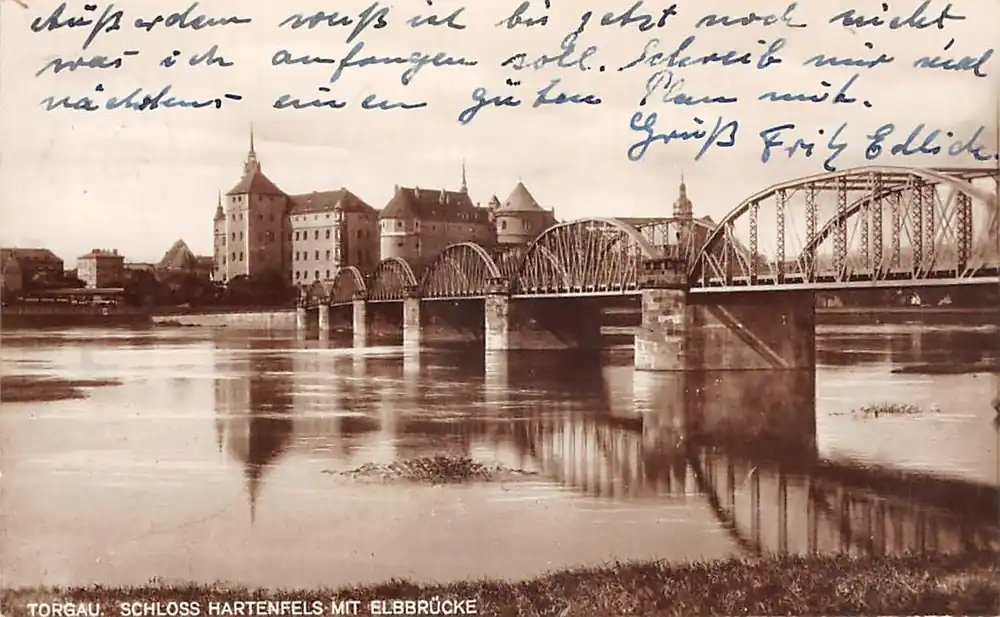 Außerdem weiß ich bis jetzt noch nicht
was ich anfangen soll. Schreib mir mal
nächstens einen guten Plan mit.
Gruß Fritz Edlich.
TORGAU. SCHLOSS HARTENFELS MIT ELBBRÜCKE